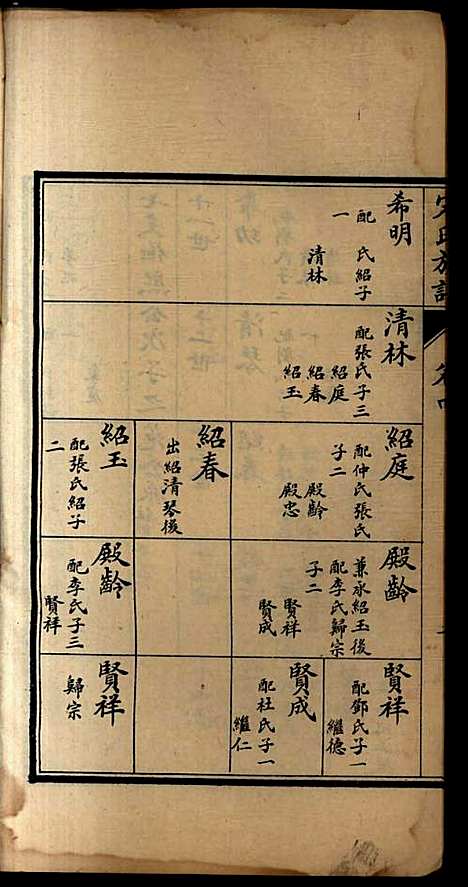 宋氏族譜
卷四
希明
配　氏紹子
一
清林
清林
配張氏子三
紹庭
紹春
紹玉
紹庭
配仲氏張氏
子二
殿齡
殿忠
紹春
出紹清琴後
紹玉
配張氏紹子
二
殿齡
兼承紹玉後
配李氏歸宗
子二
賢祥
賢成
殿齡
配李氏子三
賢祥
賢祥
配鄧氏子一
繼德
賢成
配杜氏子一
繼仁
賢祥
歸宗